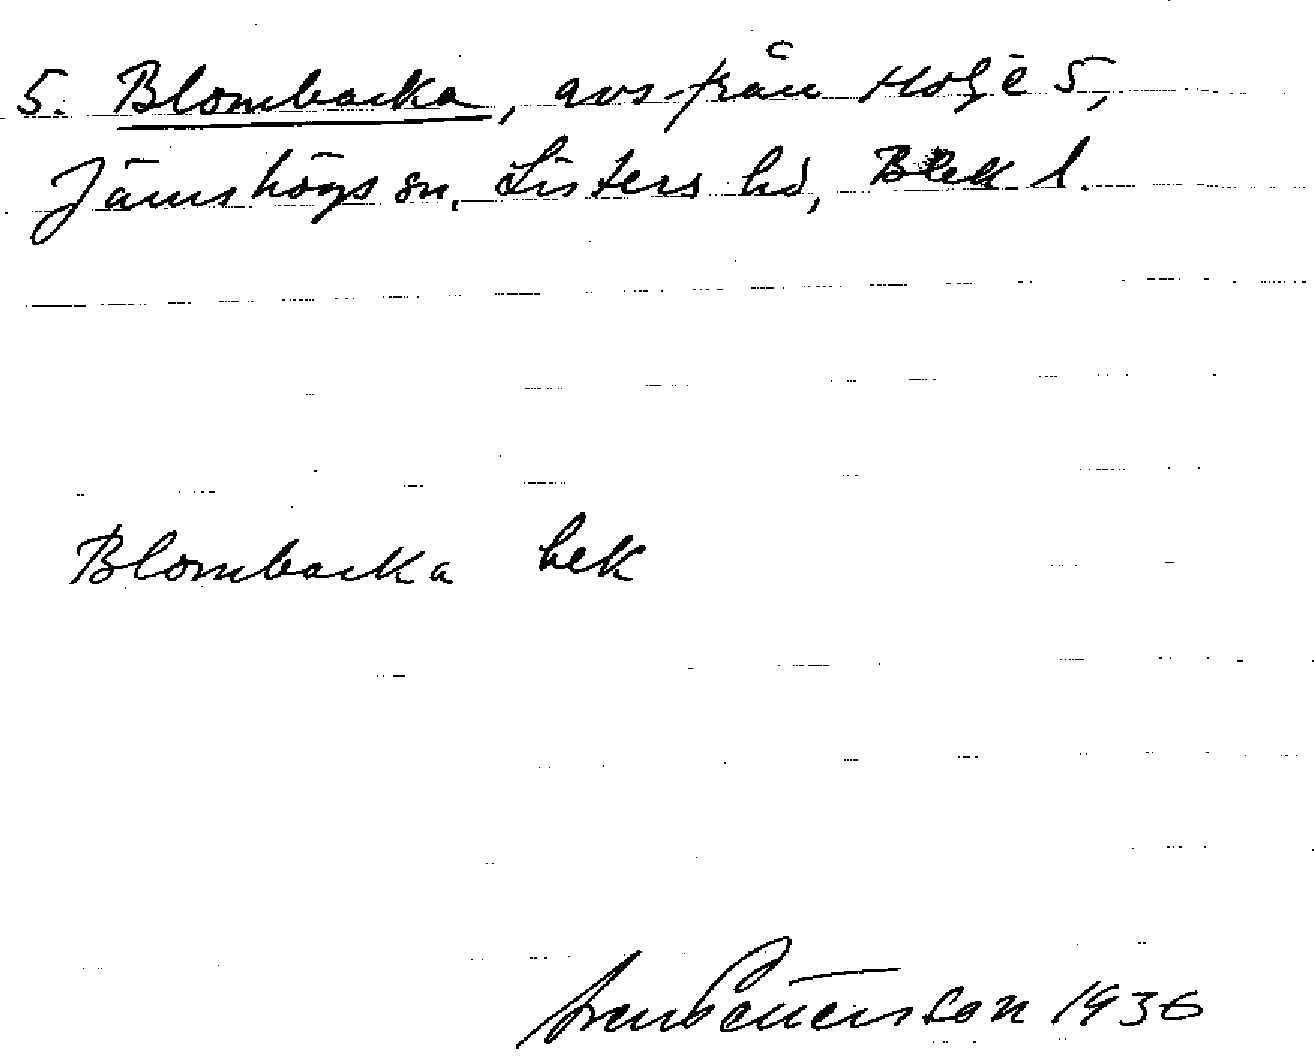 5. Blombacka, avs från Holje 5,
Jämshögs sn, Listers hd, Blek l.
Blombacka bek
1936